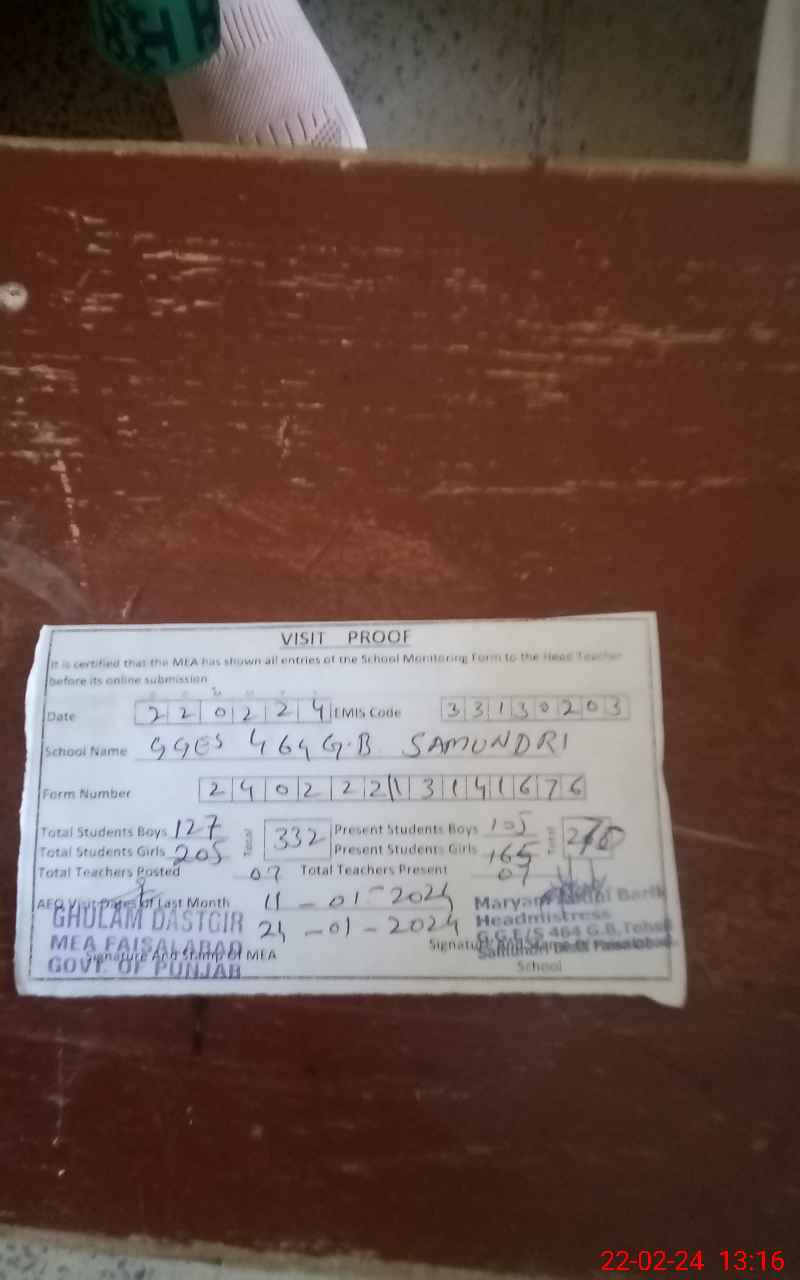 VISIT PROOF
It is certified that the MEA has shown all entries of the School Monitoring Form to the Head Teacher
before its online submission
Date 220224 EMIS Code 33130203
School Name GGES 464 G.B SAMUNDRI
Form Number 24022213141676
Total Students Boys 127 Total 332 Present Students Boys 105 Total 270
Total Students Girls 205 Present Students Girls 165
Total Teachers Posted 07 Total Teachers Present 07
AEO Visit Dates of Last Month 11-01-2024
24-01-2024
GHULAM DASTGIR
MEA FAISALABAD
GOVT. OF PUNJAB
Signature And Stamp of MEA
Maryam Abdul Barik
Headmistress
G.G.E/S 464 G.B, Tehsil
Samundri Distt Faisalabad.
Signature And Stamp of
School
22-02-24 13:16